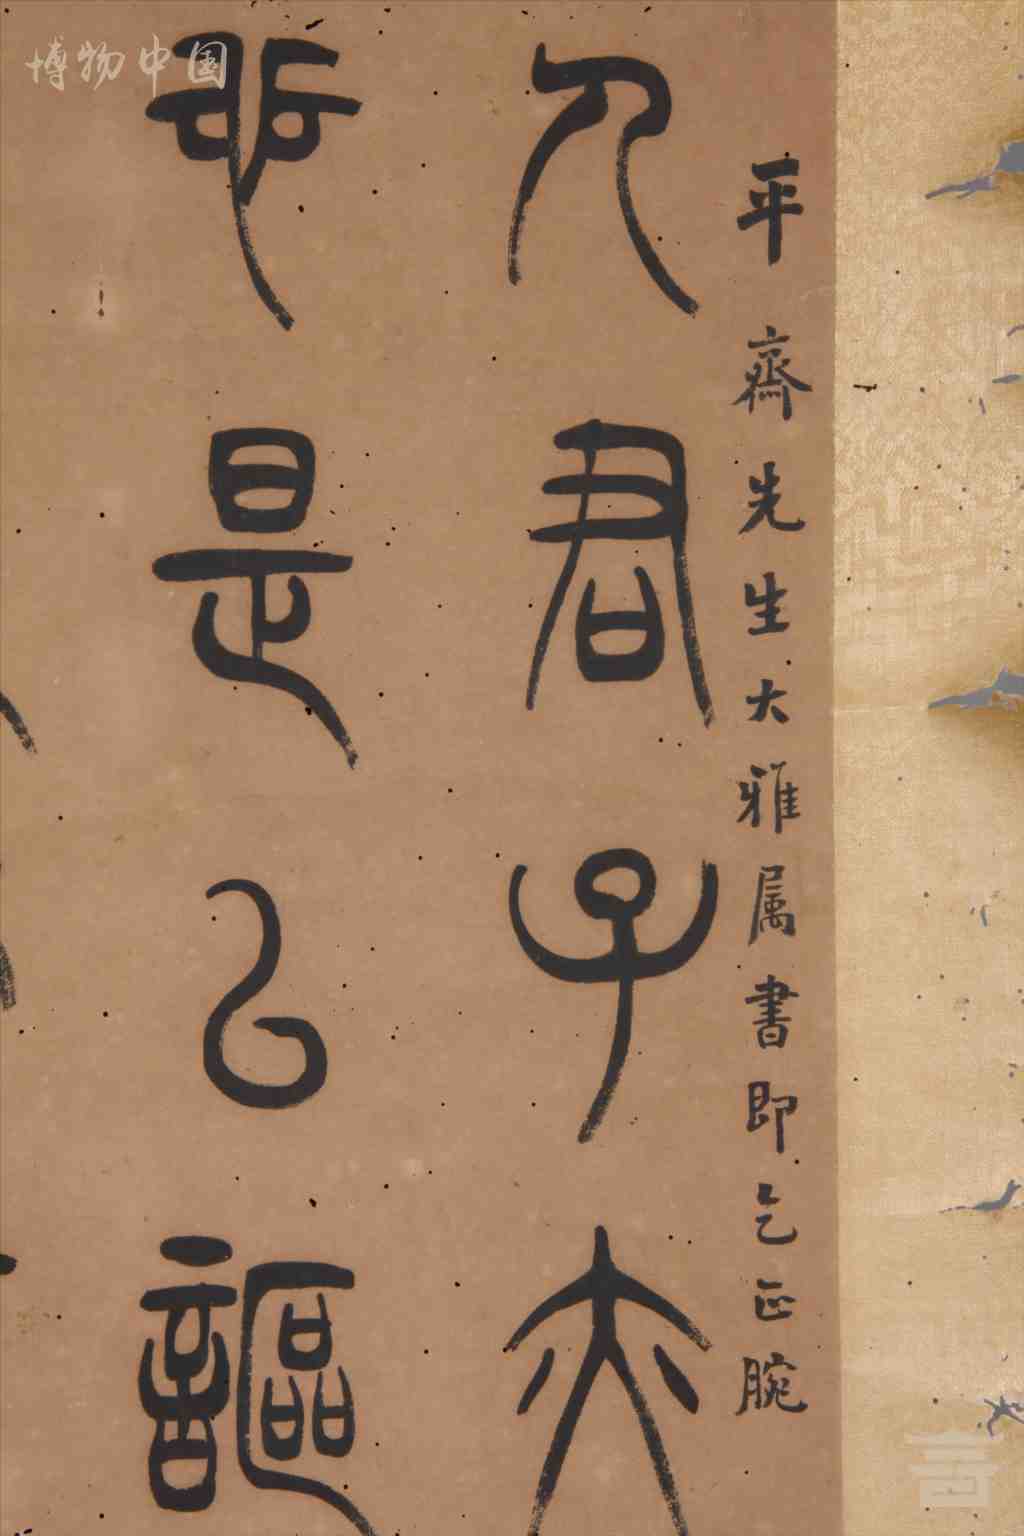 博物中国
平齋先生大雅属書即乞正腕
君子亦
是以謳